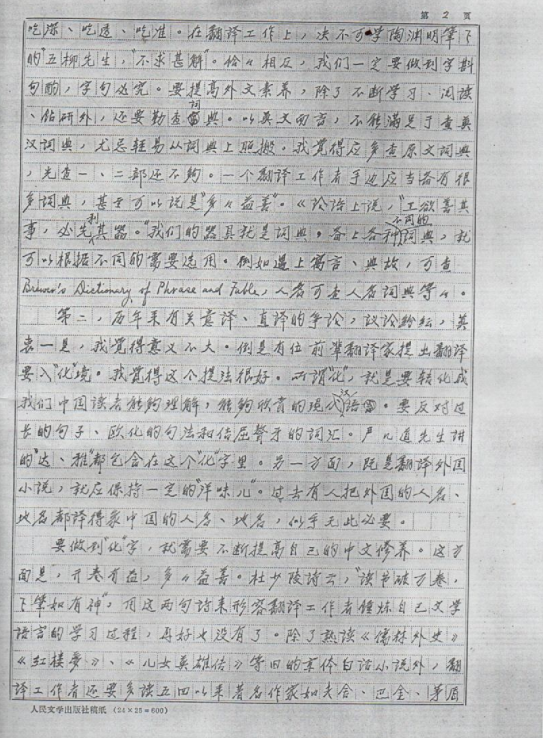 第 2 页
吃深、吃透、吃准。在翻译工作上，决不可学陶渊明笔下
的"五柳先生"，"不求甚解"。恰々相反，我们一定要做到字斟
句酌，字句必究。要提高外文素养，除了不断学习、阅读
、钻研外，还要勤查词典。以英文而言，不能满足于查英
汉词典，尤忌轻易从词典上照搬。我觉得应多查原文词典
，光查一、二部还不够。一个翻译工作者手边应当备有很
多词典，甚至可以说是"多々益善"。《论语上说，"工欲善其
事，必先利其器。"我们的器具就是词典。备上各种不同的词典，就
可以根据不同的需要选用。例如遇上寓言、典故，可查
Brewer's Dictionary of Phrase and Fable，人名可查人名词典等々。
第二，历年来有关意译、直译的争论，议论纷纭，莫
衷一是，我觉得意义不大。倒是有位前辈翻译家提出翻译
要入"化"境。我觉得这个提法很好。所谓"化"，就是要转化成
我们中国读者能够理解，能够欣赏的现代汉语。要反对过
长的句子、欧化的句法和佶屈聱牙的词汇。严几道先生讲
的"达、雅"都包含在这个"化"字里。另一方面，既是翻译外国
小说，就应保持一定的"洋味儿"。过去有人把外国的人名、
地名都译得象中国的人名、地名，似乎无此必要。
要做到"化"字，就需要不断提高自己的中文修养。这方
面是"，开卷有益，多々益善。杜少陵诗云，"读书破万卷，
下笔如有神"，用这两句诗来形容翻译工作者锤炼自己文学
语言的学习过程，再好也没有了。除了熟读《儒林外史》
《红楼梦》、《儿女英雄传》等旧的章体白话小说外，翻
译工作者还要多读五四以来著名作家如老舍、巴金、茅盾
人民文学出版社稿纸（24×25＝600）